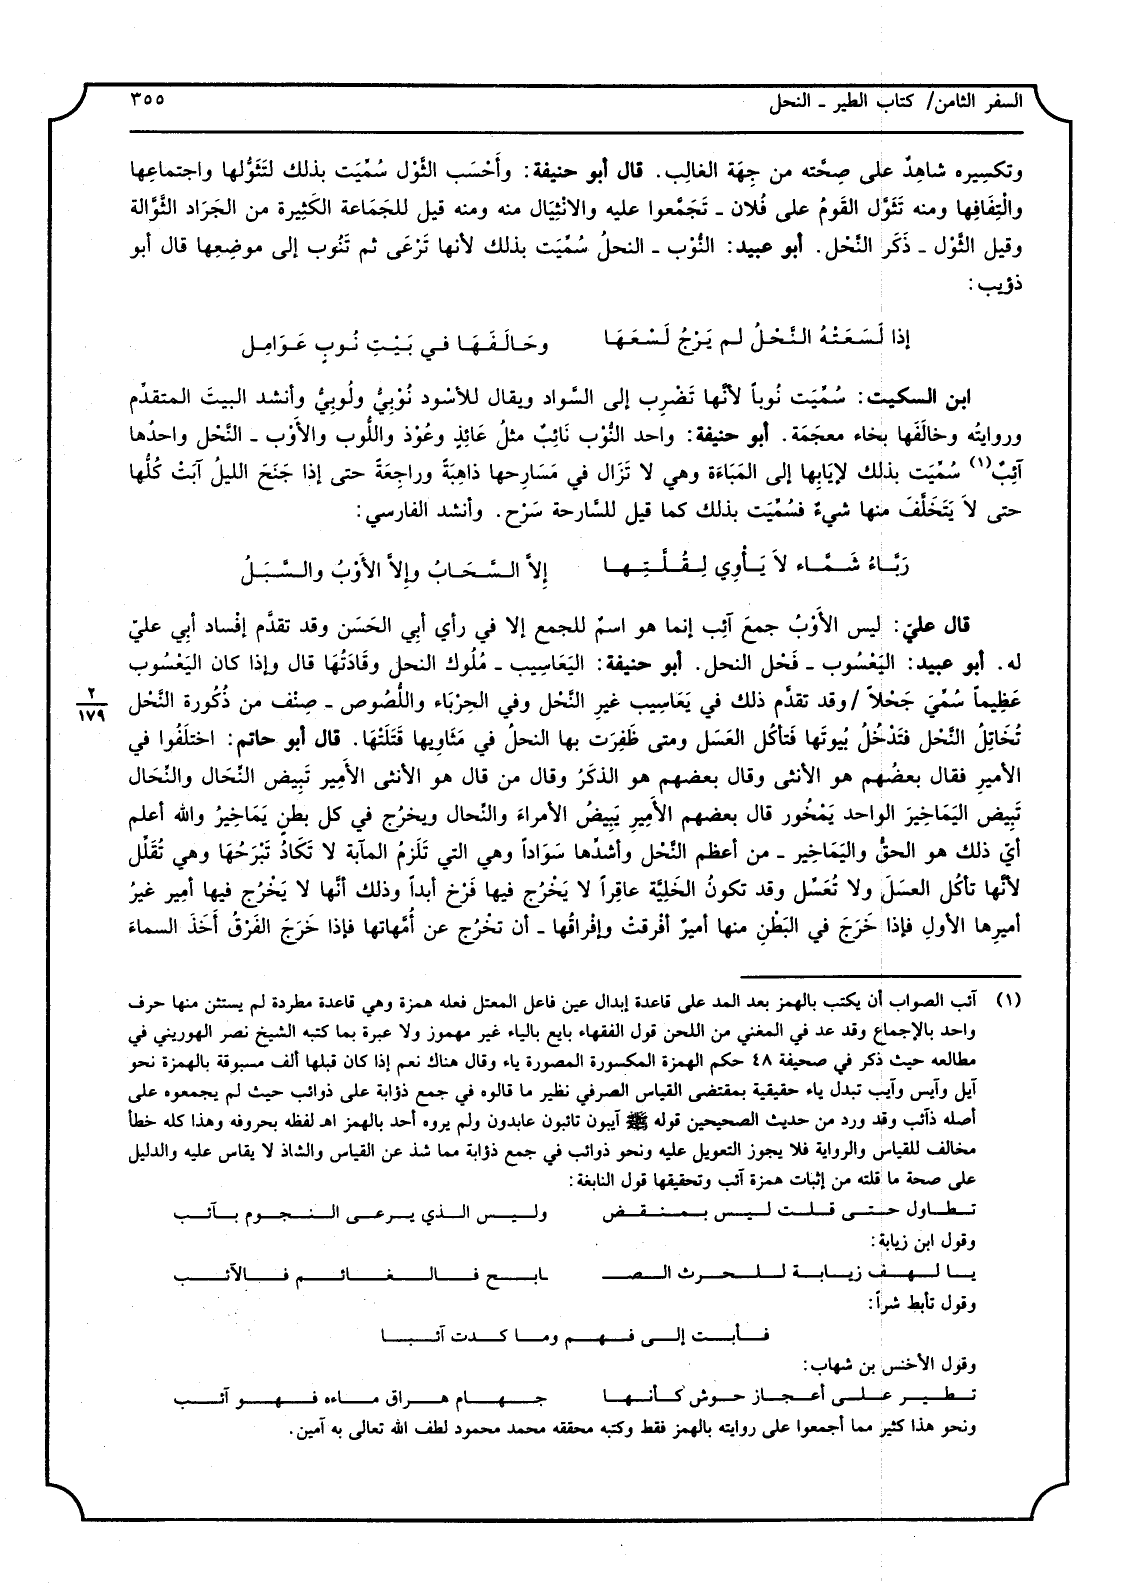 السفر الثامن/ كتاب الطير ـ النحل ٣٥٥
وتكسِيره شاهِدٌ على صِحَّته من جِهَة الغالِب. قال أبو حنيفة: وأَحْسَب الثَّوْل سُمِّيَت بذلك لتَثَوُّلها واجتماعِها
والْتِفَافِها ومنه تَثَوَّل القَومُ على فُلان ـ تَجَمَّعوا عليه والانْثِيَال منه ومنه قيل للجَماعة الكَثِيرة من الجَرَاد الثَّوَّالة
وقيل الثَّوْل ـ ذَكَر النَّحْل. أبو عبيد: النُّوْب ـ النحلُ سُمِّيَت بذلك لأنها تَرْعَى ثم تَنُوب إلى موضِعِها قال أبو
ذؤيب:
إذا لَسَعَتْهُ النَّحْلُ لم يَرْجُ لَسْعَهَا وحَالَفَهَا في بَيْتِ نُوبٍ عَوَامِلِ
ابن السكيت: سُمِّيَت نُوباً لأنَّها تَضْرِب إلى السَّواد ويقال للأسْود نُوْبِيُّ ولُوبِيُّ وأنشد البيتَ المتقدِّم
وروايتُه وخالَفَها بخاء معجَمَة. أبو حنيفة: واحد النُّوْب نَائِبٌ مثلُ عَائِذٍ وعُوْذ واللُّوب والأَوْب ـ النَّحْل واحدُها
آئِبٌ(١) سُمِّيَت بذلك لإيَابِها إلى المَبَاءَة وهي لا تَزَال في مَسَارِحها ذاهِبَةً وراجِعَةً حتى إذا جَنَحَ الليلُ آبَتْ كُلُّها
حتى لاَ يَتَخَلَّفَ منها شيءٌ فسُمِّيَت بذلك كما قيل للسَّارحة سَرْح. وأنشد الفارسي:
رَبَّاءُ شَمَّاء لاَ يَأْوِي لِقُلَّتِها إلاَّ السَّحَابُ وإلاَّ الأَوْبُ والسَّبَلُ
قال عليّ: ليس الأَوْبُ جمعَ آئِب إنما هو اسمٌ للجمع إلا في رأي أبِي الحَسَن وقد تقدَّم إفْساد أبي عليّ
له. أبو عبيد: اليَعْسُوب ـ فَحْل النحل. أبو حنيفة: اليَعَاسِيب ـ مُلُوك النحل وقَادَتُهَا قال وإذا كان اليَعْسُوب
عَظِيماً سُمِّيَ جَحْلاً /وقد تقدَّم ذلك في يَعَاسِيب غيرِ النَّحْل وفي الحِرْبَاء واللُّصُوص ـ صِنْف من ذُكُورة النَّحْل
٢
١٧٩
تُخَاتِلُ النَّحْل فتَدْخُلُ بُيوتَها فَتأكُل العَسَل ومتى ظَفِرَت بها النحلُ في مَثَاوِيها قَتَلَتْهَا. قال أبو حاتم: اختلَفُوا في
الأميرِ فقال بعضُهم هو الأنثى وقال بعضهم هو الذكَرُ وقال من قال هو الأنثى الأَمِير تَبِيض النِّحَال والنِّحَال
تَبِيض اليَمَاخِيرَ الواحد يَمْخُور قال بعضهم الأَمِيرِ يَبِيضُ الأمراءَ والنِّحال ويخرُج في كل بطنٍ يَمَاخِيرُ والله أعلم
أيّ ذلك هو الحقُّ واليَمَاخِير ـ من أعظم النَّحْل وأشدِّها سَوَاداً وهي التي تَلْزَمُ المآبة لا تَكَادُ تَبْرَحُهَا وهي تُقَلِّل
لأنَّها تأكُل العسَلَ ولا تُعَسِّل وقد تكونُ الخَلِيَّة عاقِراً لا يَخْرُج فيها فَرْخ أبداً وذلك أنَّها لا يَخْرُج فيها أمِير غيرُ
أميرِها الأولِ فإذا خَرَجَ في البَطْنِ منها أميرٌ أفْرقتْ وإفْراقُها ـ أن تخْرُج عن أُمَّهاتها فإذا خَرَجَ الفَرْقُ أَخَذَ السماءَ
(١) آئب الصواب أن يكتب بالهمز بعد المد على قاعدة إبدال عين فاعل المعتل فعله همزة وهي قاعدة مطردة لم يستثن منها حرف
واحد بالإجماع وقد عد في المغني من اللحن قول الفقهاء بايع بالياء غير مهموز ولا عبرة بما كتبه الشيخ نصر الهوريني في
مطالعه حيث ذكر في صحيفة ٤٨ حكم الهمزة المكسورة المصورة ياء وقال هناك نعم إذا كان قبلها ألف مسبوقة بالهمزة نحو
آيل وآيس وآيب تبدل ياء حقيقية بمقتضى القياس الصرفي نظير ما قالوه في جمع ذؤابة على ذوائب حيث لم يجمعوه على
أصله ذآئب وقد ورد من حديث الصحيحين قوله ﷺ آيبون تائبون عابدون ولم يروه أحد بالهمز اهـ لفظه بحروفه وهذا كله خطأ
مخالف للقياس والرواية فلا يجوز التعويل عليه ونحو ذوائب في جمع ذؤابة مما شذ عن القياس والشاذ لا يقاس عليه والدليل
على صحة ما قلته من إثبات همزة آئب وتحقيقها قول النابغة:
تطاول حتى قلت ليس بمنقض وليس الذي يرعى النجوم بآئب
وقول ابن زيابة:
يا لهف زيابة للحرث الصـ ـابح فالغائم فالآئب
وقول تأبط شراً:
فأبت إلى فهم وما كدت آئبا
وقول الأخنس بن شهاب:
تطير على أعجاز حوش كأنها جهام هراق ماءه فهو آئب
ونحو هذا كثير مما أجمعوا على روايته بالهمز فقط وكتبه محققه محمد محمود لطف الله تعالى به آمين.